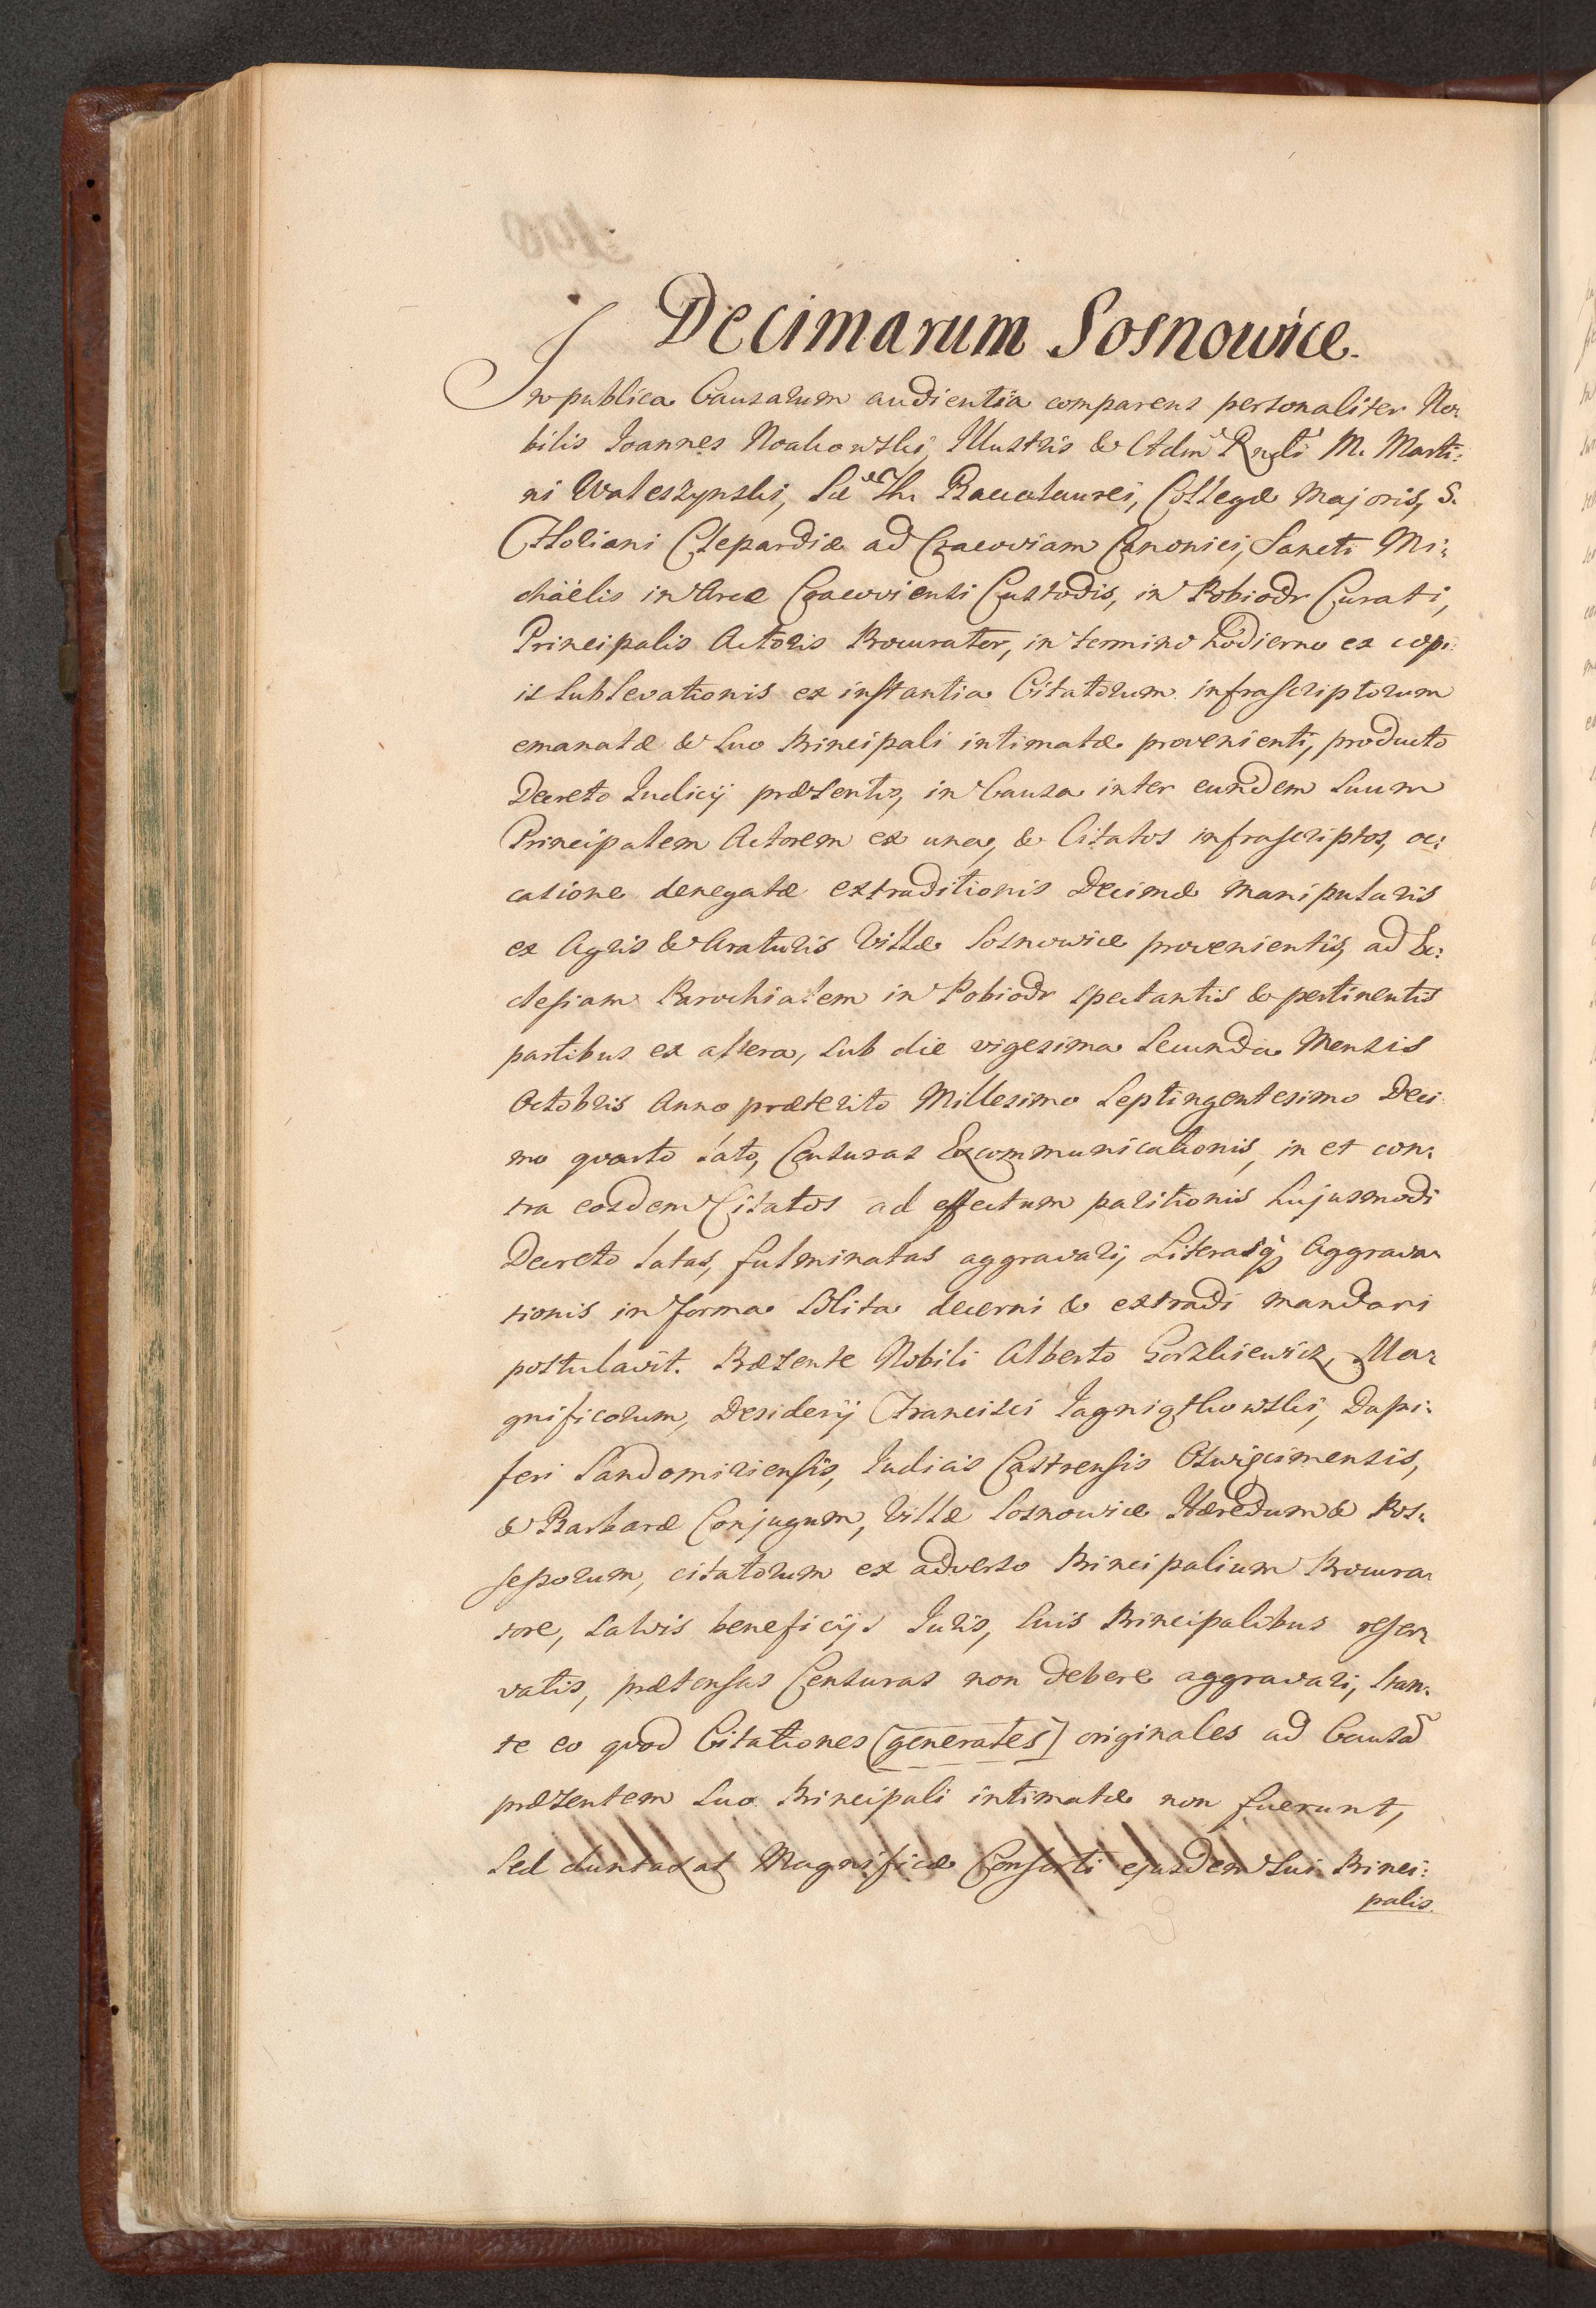 Decimarum Sosnowice.
In publica Causarum audientia comparens personaliter No:
bilis Joannes Noakowski, Illustris & Adm Rndi M. Marti:
ni Waleszynski, Sæ Th. Baccalaurei, Collegæ Majoris, S.
Floriani Clepardiæ ad Cracoviam Canonici, Sancti Mi:
chäelis in Arce Cracoviensi Custodis, in Pobiodr Curati,
Principalis Actoris Procurator, in termino hodierno ex copi:
is sublevationis ex instantia Citatorum infrascriptorum
emanatæ & suo Principali intimatæ provenienti, producto
Decreto Judicij præsentis, in Causa inter eundem suum
Principalem Actorem ex una, & Citatos infrascriptos, oc:
casione denegatæ extraditionis Decimæ Manipularis
ex Agris & Araturis Villæ Sosnowice provenientis, ad Ec:
clesiam Parochialem in Pobiodr spectantis & pertinentis
partibus ex altera, sub die vigesima secunda Mensis
Octobris Anno præterito Millesimo Septingentesimo Deci
mo quarto lato, Censuras Excommunicationis, in et con:
tra eosdem Citatos ad effectum paritionis hujusmodi
Decreto latas, fulminatas aggravari, Literasq; Aggrava:
tionis in forma solita decerni & extradi mandari
postulavit. Præsente Nobili Alberto Gorzkiewicz, Ma:
gnificorum, Desiderij Francisci Jagniątkowski, Dapi:
feri Sandomiriensis, Judicis Castrensis Oswięcimensis,
& Barbaræ Conjugum, Villæ Sosnowice Hæredum & Pos:
sessorum, citatorum ex adverso Principalium Procura:
tore, salvis beneficijs Juris, suis Principalibus reser:
vatis, prætensas Censuras non debere aggravari, stan:
te eo quod Citationes [generales] originales ad Causã
præsentem suo Principali intimatæ non fuerunt,
sed duntaxat Magnificæ Consorti ejusdem sui Princi:
palis.